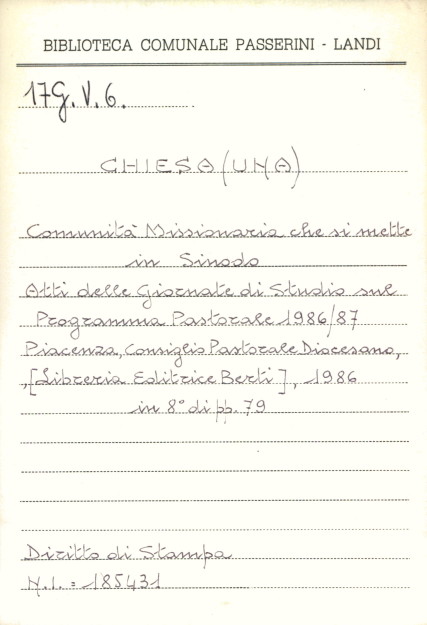 BIBLIOTECA COMUNALE PASSERINI - LANDI
17G.V.6.
CHIESA (UNA)
Comunità Missionaria che si mette
in Sinodo
Atti delle Giornate di Studio sul
Programma Pastorale 1986/87
Piacenza, Consiglio Pastorale Diocesano,
,[Libreria Editrice Berti], 1986
in 8° di pp. 79
Diritto di Stampa
N.I. = 185431